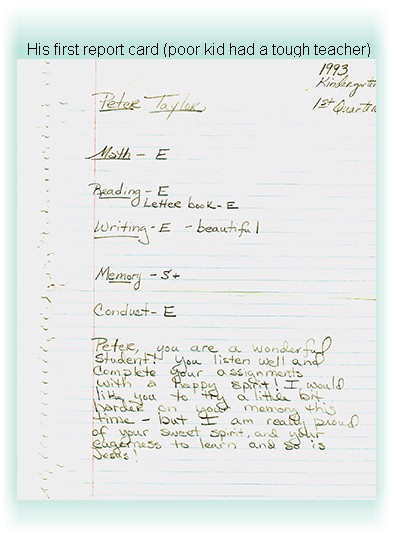 His first report card (poor kid had a tough teacher)
1993
Kindergarten
1st Quarter
Peter Taylor
Math - E
Reading - E
Letter book - E
Writing - E - beautiful
Memory - S+
Conduct - E
Peter, you are a wonderful
student! You listen well and
complete your assignments
with a happy spirit! I would
like you to try a little bit
harder on your memory this
time - but I am really proud
of your sweet spirit, and your
eagerness to learn and so is
Jesus!